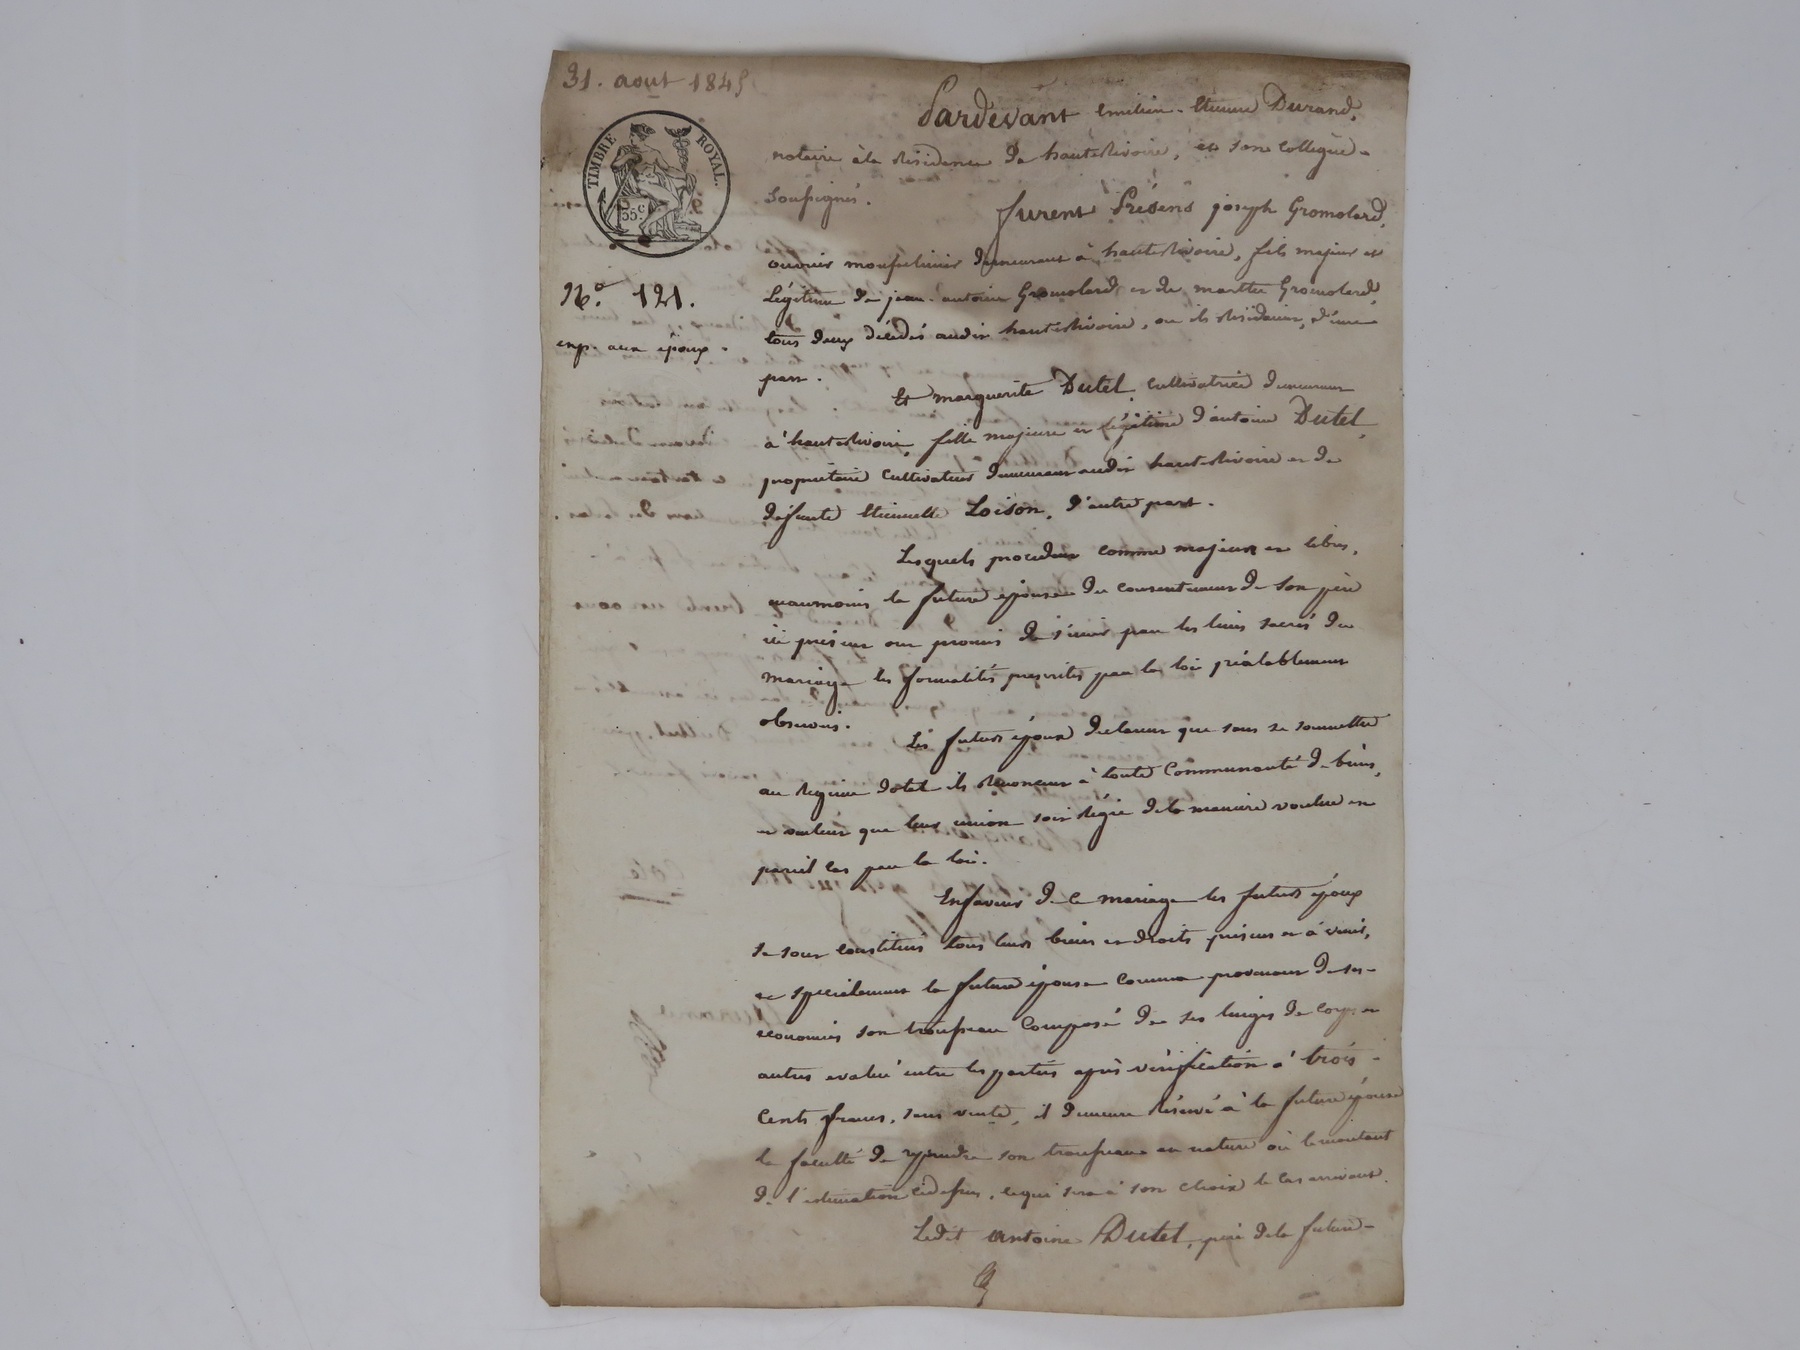 31. aout 1845
TIMBRE ROYAL.
35c
No. 121.
exp. aux époux.
Pardevant Emilien-Etienne Durand,
notaire à la résidence de hauterivoire, et son collègue
soussignés.
furent Présens joseph Gromolard,
ouvrier mousselinier demeurant à hauterivoire, fils majeur et
légitime de jean-antoine Gromolard et de marthe Gromolard,
tous deux décédés audit hauterivoire, où ils résidaient, d'une
part.
Et marguerite Dutel, cultivatrice demeurant
à hauterivoire, fille majeure et légitime d'antoine Dutel,
propriétaire cultivateur demeurant audit hauterivoire et de
défunte Etiennette Loison, d'autre part.
Lesquels procédant comme majeurs et libres,
néanmoins la future épouse du consentement de son père
ici présent ont promis de s'unir par les liens sacrés du
mariage les formalités prescrites par la loi préalablement
observées.
Les futurs époux déclarent que sans se soumettre
au régime dotal ils renoncent à toute communauté de biens,
et veulent que leur union soit régie de la manière voulue en
pareil cas par la loi.
En faveur de ce mariage les futurs époux
se sont constitués tous leurs biens et droits présens et à venir,
et spécialement la future épouse comme provenant de ses
économies son trousseau composé de ses linges de corps et
autres évalué entre les parties après vérification à trois
cents francs, sans vente, il demeure réservé à la future épouse
la faculté de reprendre son trousseau en nature où le montant
de l'estimation cidessus, ce qui sera à son choix le cas arrivant.
Ledit antoine Dutel, père de la future